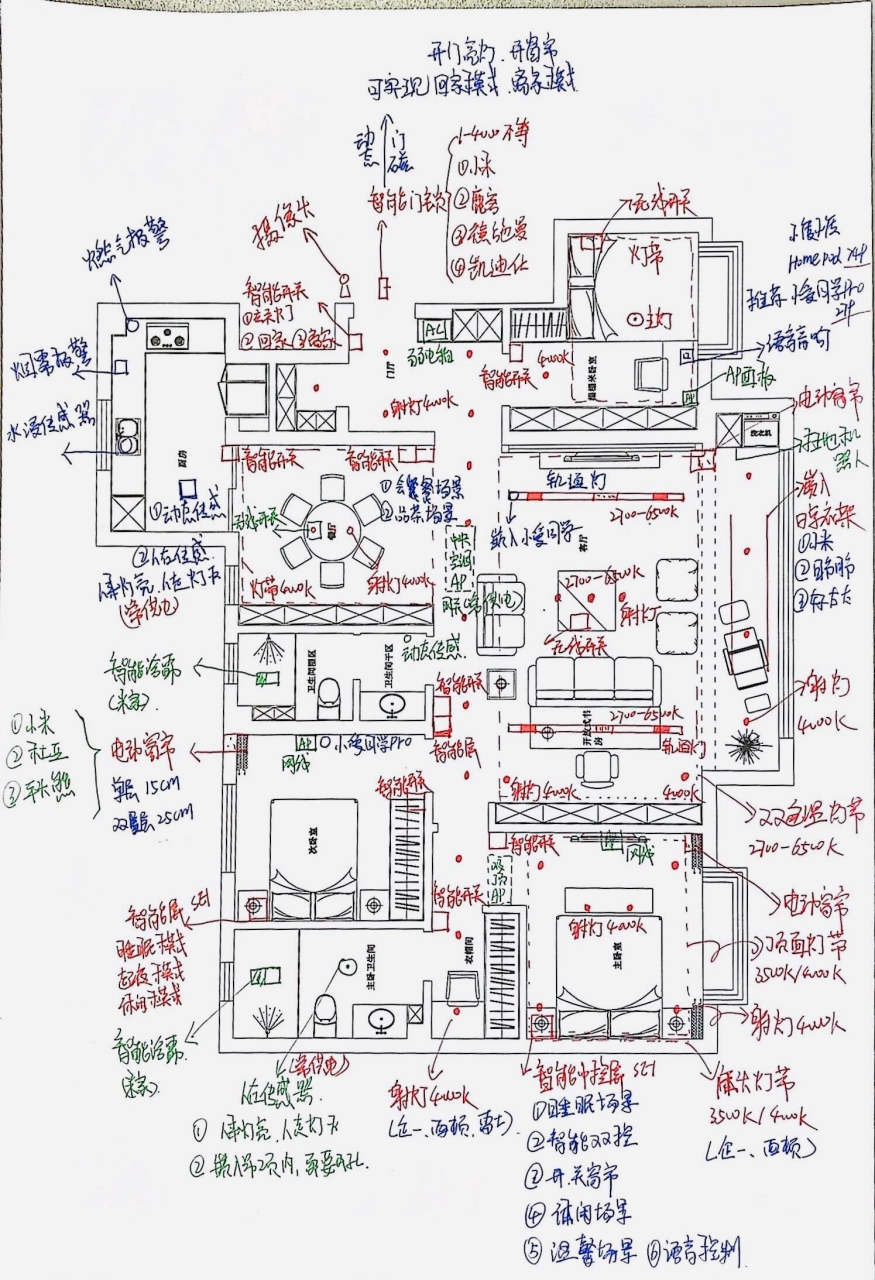 开门亮灯、开窗帘
可实现回家模式、离家模式
动态
门磁
智能门锁
1-4000不等
①小米
②鹿客
③德施曼
④凯迪仕
摄像头
燃气报警
烟雾报警
水浸传感器
智能开关
①玄关灯
②回家 ③离家
无线开关
灯带
主灯
4000K
智能开关
AC
弱电箱
门厅
射灯4000K
语音音响
AP面板
AP
HomePod
推荐 小爱同学Pro
电动窗帘
扫地机器人
嵌入
晾衣架
①小米
③好太太
洗衣机
厨房
①动态传感
②人在传感
人来灯亮、人走灯灭
(常供电)
智能开关
智能开关
①会餐场景
②品茶场景
无线开关
餐厅
灯带4000K
射灯4000K
轨道灯
2700-6500K
嵌入小爱同学
客厅
中央空调
AP
2700-6500K
射灯
无线开关
动态传感
卫生间湿区
卫生间干区
智能冷霸
(米家)
智能开关
智能屏
2700-6500K
开放式书房
轨道灯
射灯4000K
4000K
射灯
4000K
①小米
电动窗帘
单层 15cm
双层 25cm
AP
网线
小爱同学Pro
智能开关
次卧室
双色温灯带
2700-6500K
智能开关
AP
网线
吸顶
AP
智能开关
射灯4000K
主卧室
衣帽间
主卧卫生间
电动窗帘
顶面灯带
3500K/4000K
射灯4000K
智能屏 SE1
睡眠模式
起夜模式
休闲模式
智能冷霸
(米家)
(常供电)
人在传感器
①人来灯亮、人走灯灭
②嵌入吊顶内,需要开孔
射灯4000K
(企一、西顿、雷士)
智能中控屏 SE1
①睡眠场景
②智能双控
③开、关窗帘
④休闲场景
⑤温馨场景 ⑥语音控制
床头灯带
3500K/4000K
(企一、西顿)